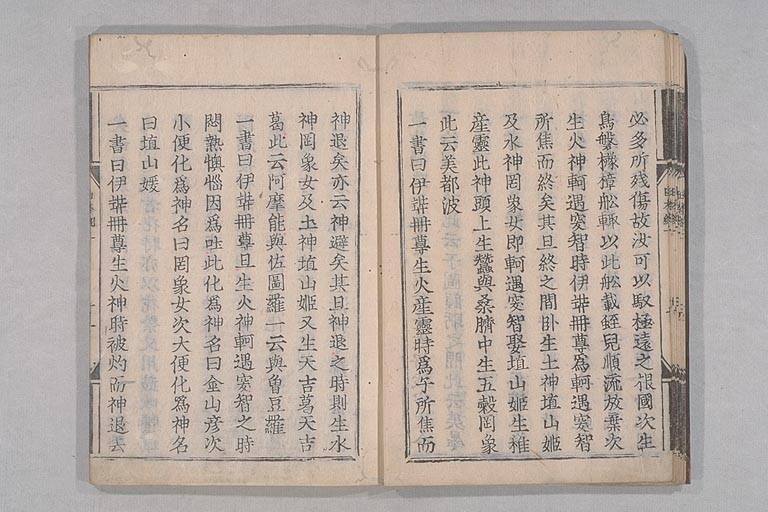 必多所残傷故汝可以馭極遠之根國次生
鳥磐櫲樟舩輙以此舩載蛭兒順流放棄次
生火神軻遇突智時伊弉冊尊為軻遇突智
所焦而終矣其且終之間卧生土神埴山姬
及水神罔象女即軻遇突智娶埴山姬生稚
産靈此神頭上生蠶與桑臍中生五穀罔象
此云美都波
一書曰伊弉冊尊生火産靈時爲子所焦而
神退矣亦云神避矣其且神退之時則生水
神罔象女及土神埴山姬又生天吉葛天吉
葛此云阿摩能與佐圖羅一云與魯豆羅
一書曰伊弉冊尊且生火神軻遇突智之時
悶熱懊惱因爲吐此化爲神名曰金山彦次
小便化爲神名曰罔象女次大便化爲神名
曰埴山媛
一書曰伊弉冊尊生火神時被灼而神退去